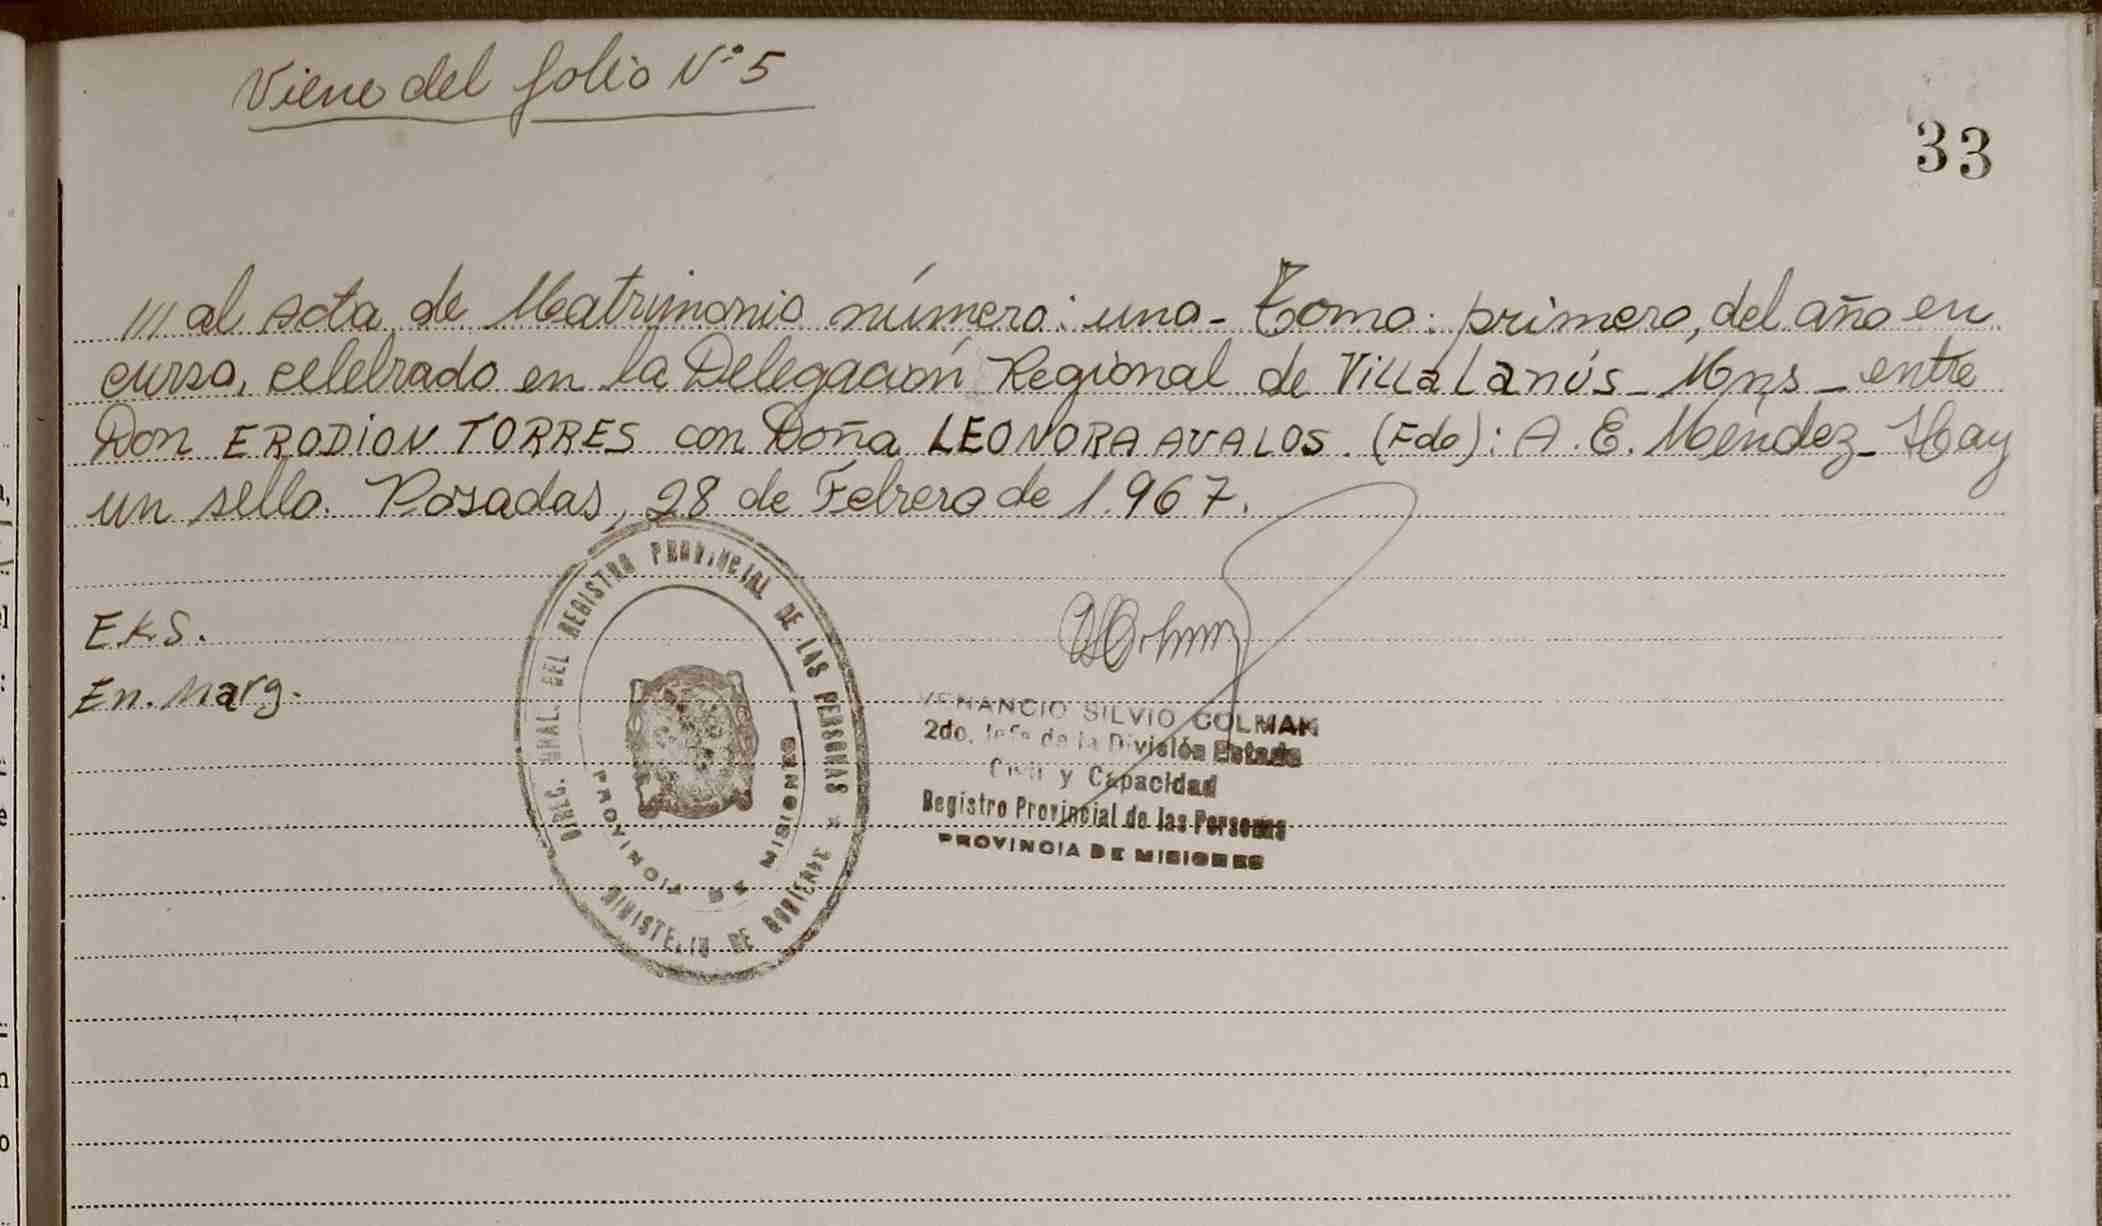 Viene del folio N° 5
33
/// al acta de Matrimonio número: uno- Tomo: primero, del año en
curso, celebrado en la Delegación Regional de Villa Lanús - Mns - entre
Don ERODION TORRES con Doña LEONORA AVALOS. (Fdo): A. E. Méndez - Hay
un sello. Posadas, 28 de Febrero de 1.967.
E.K.S.
En. Marg.
DIREC. GRAL. DEL REGISTRO PROVINCIAL DE LAS PERSONAS *
MINISTERIO DE GOBIERNO
PROVINCIA DE MISIONES
VENANCIO SILVIO COLMAN
2do. Jefe de la División Estado
Civil y Capacidad
Registro Provincial de las Personas
PROVINCIA DE MISIONES